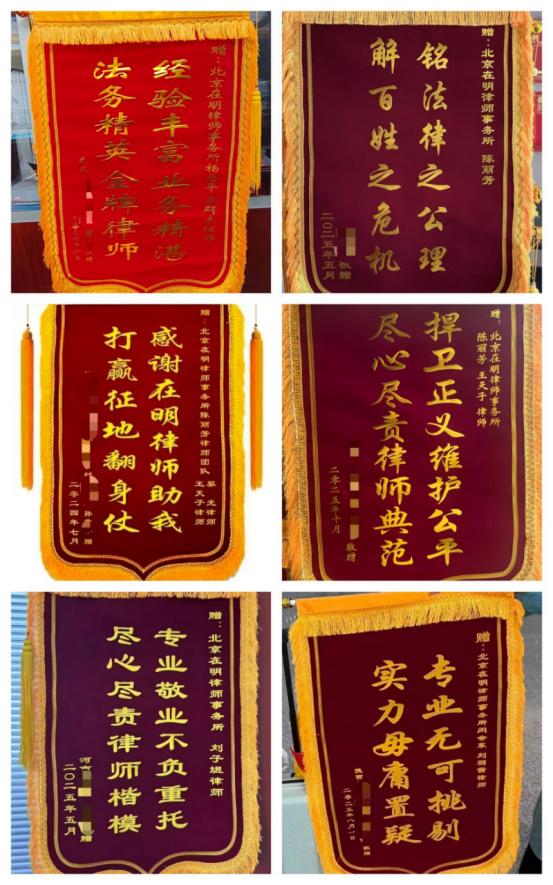 赠：北京在明律师事务所杨
经验丰富业务精湛
法务精英金牌律师
赠：北京在明律师事务所 陈丽芳
铭法律之公理
解百姓之危机
敬赠
二〇二五年五月
赠：北京在明律师事务所陈丽芳律师团队
王天子律师
感谢在明律师助我
打赢征地翻身仗
孙
赠
二零二四年七月
赠：北京在明律师事务所
陈丽芳 王天子 律师
捍卫正义维护公平
尽心尽责律师典范
敬赠
二零二五年十月
赠：北京在明律师事务所 刘子媞律师
专业敬业不负重托
尽心尽责律师楷模
河
赠
二〇二五年五月
赠：北京在明律师事务所
专业无可挑剔
实力毋庸置疑
陕西
敬赠
二零二五年八月一日